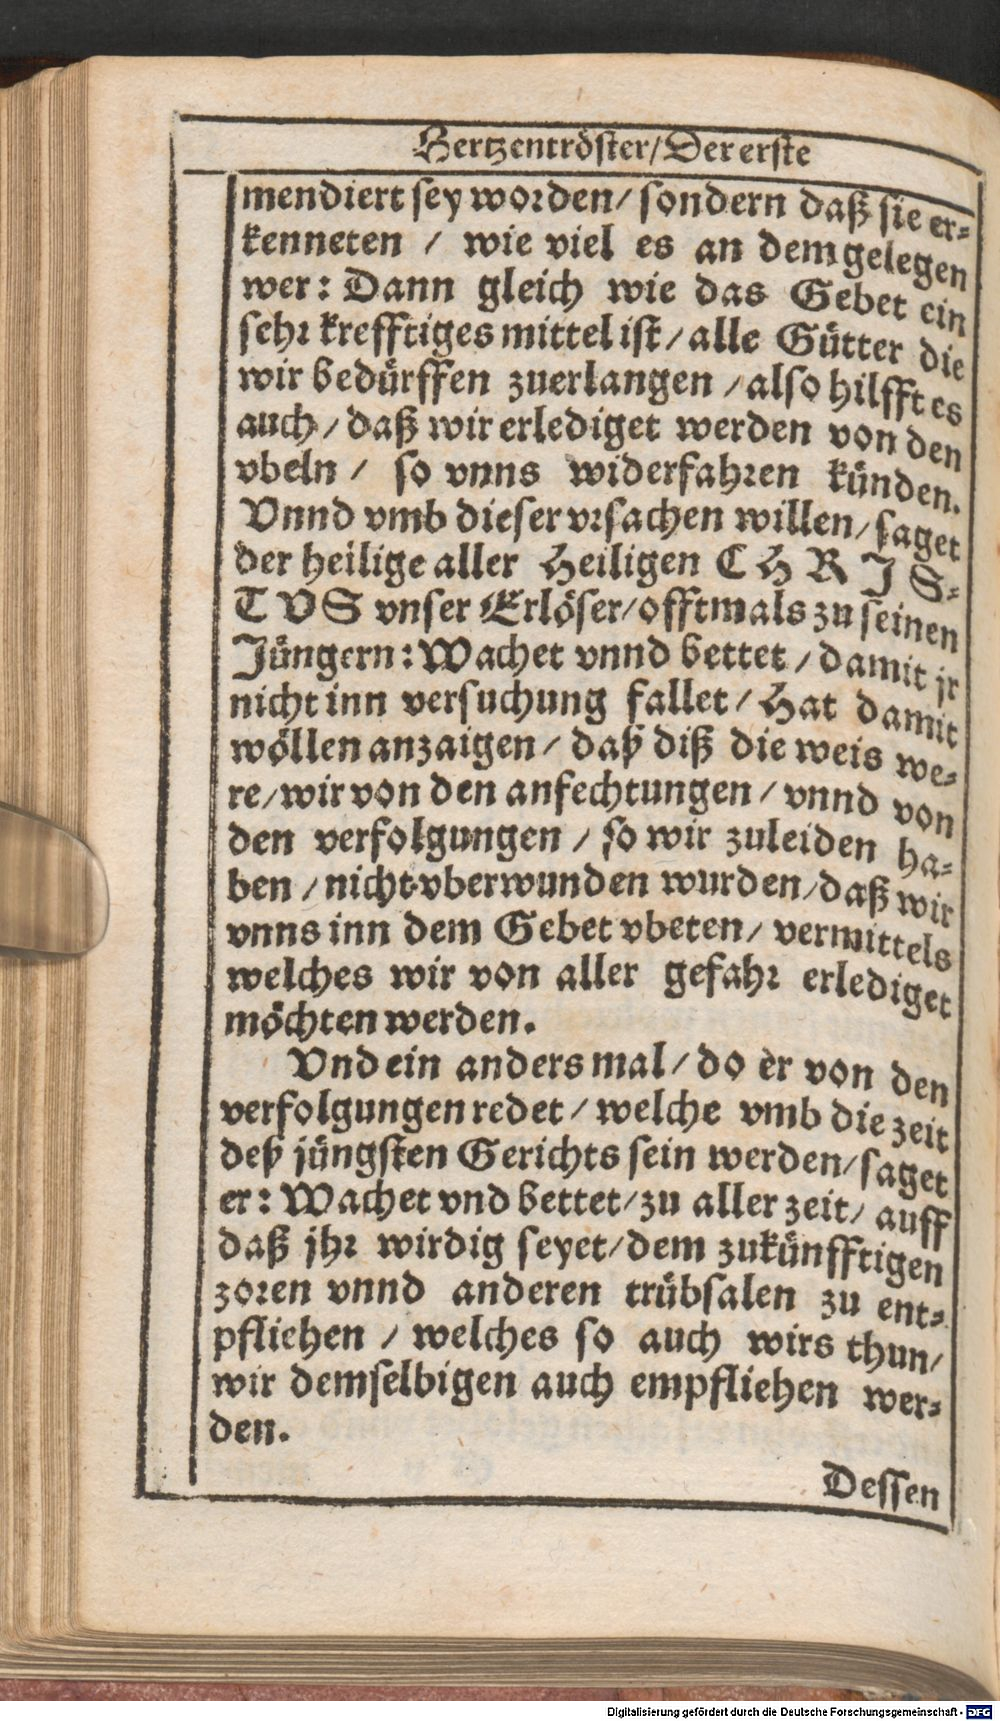 Hertzentröster/Der erste
mendiert sey worden/ sondern daß sie er-
kenneten / wie viel es an dem gelegen
wer: Dann gleich wie das Gebet ein
sehr krefftiges mittel ist/ alle Gütter die
wir bedürffen zuerlangen /also hilfft es
auch/ daß wir erlediget werden von den
vbeln / so vnns widerfahren künden.
Vnnd vmb dieser vrsachen willen/ saget
der heilige aller Heiligen CHRIS-
TVS vnser Erlöser/offtmals zu seinen
Jüngern: Wachet vnnd bettet / damit jr
nicht inn versuchung fallet/ Hat damit
wöllen anzaigen/ daß diß die weis we-
re/wir von den anfechtungen / vnnd von
den verfolgungen / so wir zuleiden ha-
ben /nicht vberwunden wurden/daß wir
vnns inn dem Gebet vbeten/ vermittels
welches wir von aller gefahr erlediget
möchten werden.
Vnd ein anders mal/ do er von den
verfolgungen redet/ welche vmb die zeit
deß jüngsten Gerichts sein werden/saget
er: Wachet vnd bettet/zu aller zeit/ auff
daß jhr wirdig seyet/dem zukünfftigen
zoren vnnd anderen trübsalen zu ent-
pfliehen / welches so auch wirs thun/
wir demselbigen auch empfliehen wer-
den.
Dessen
Digitalisierung gefördert durch die Deutsche Forschungsgemeinschaft - DFG